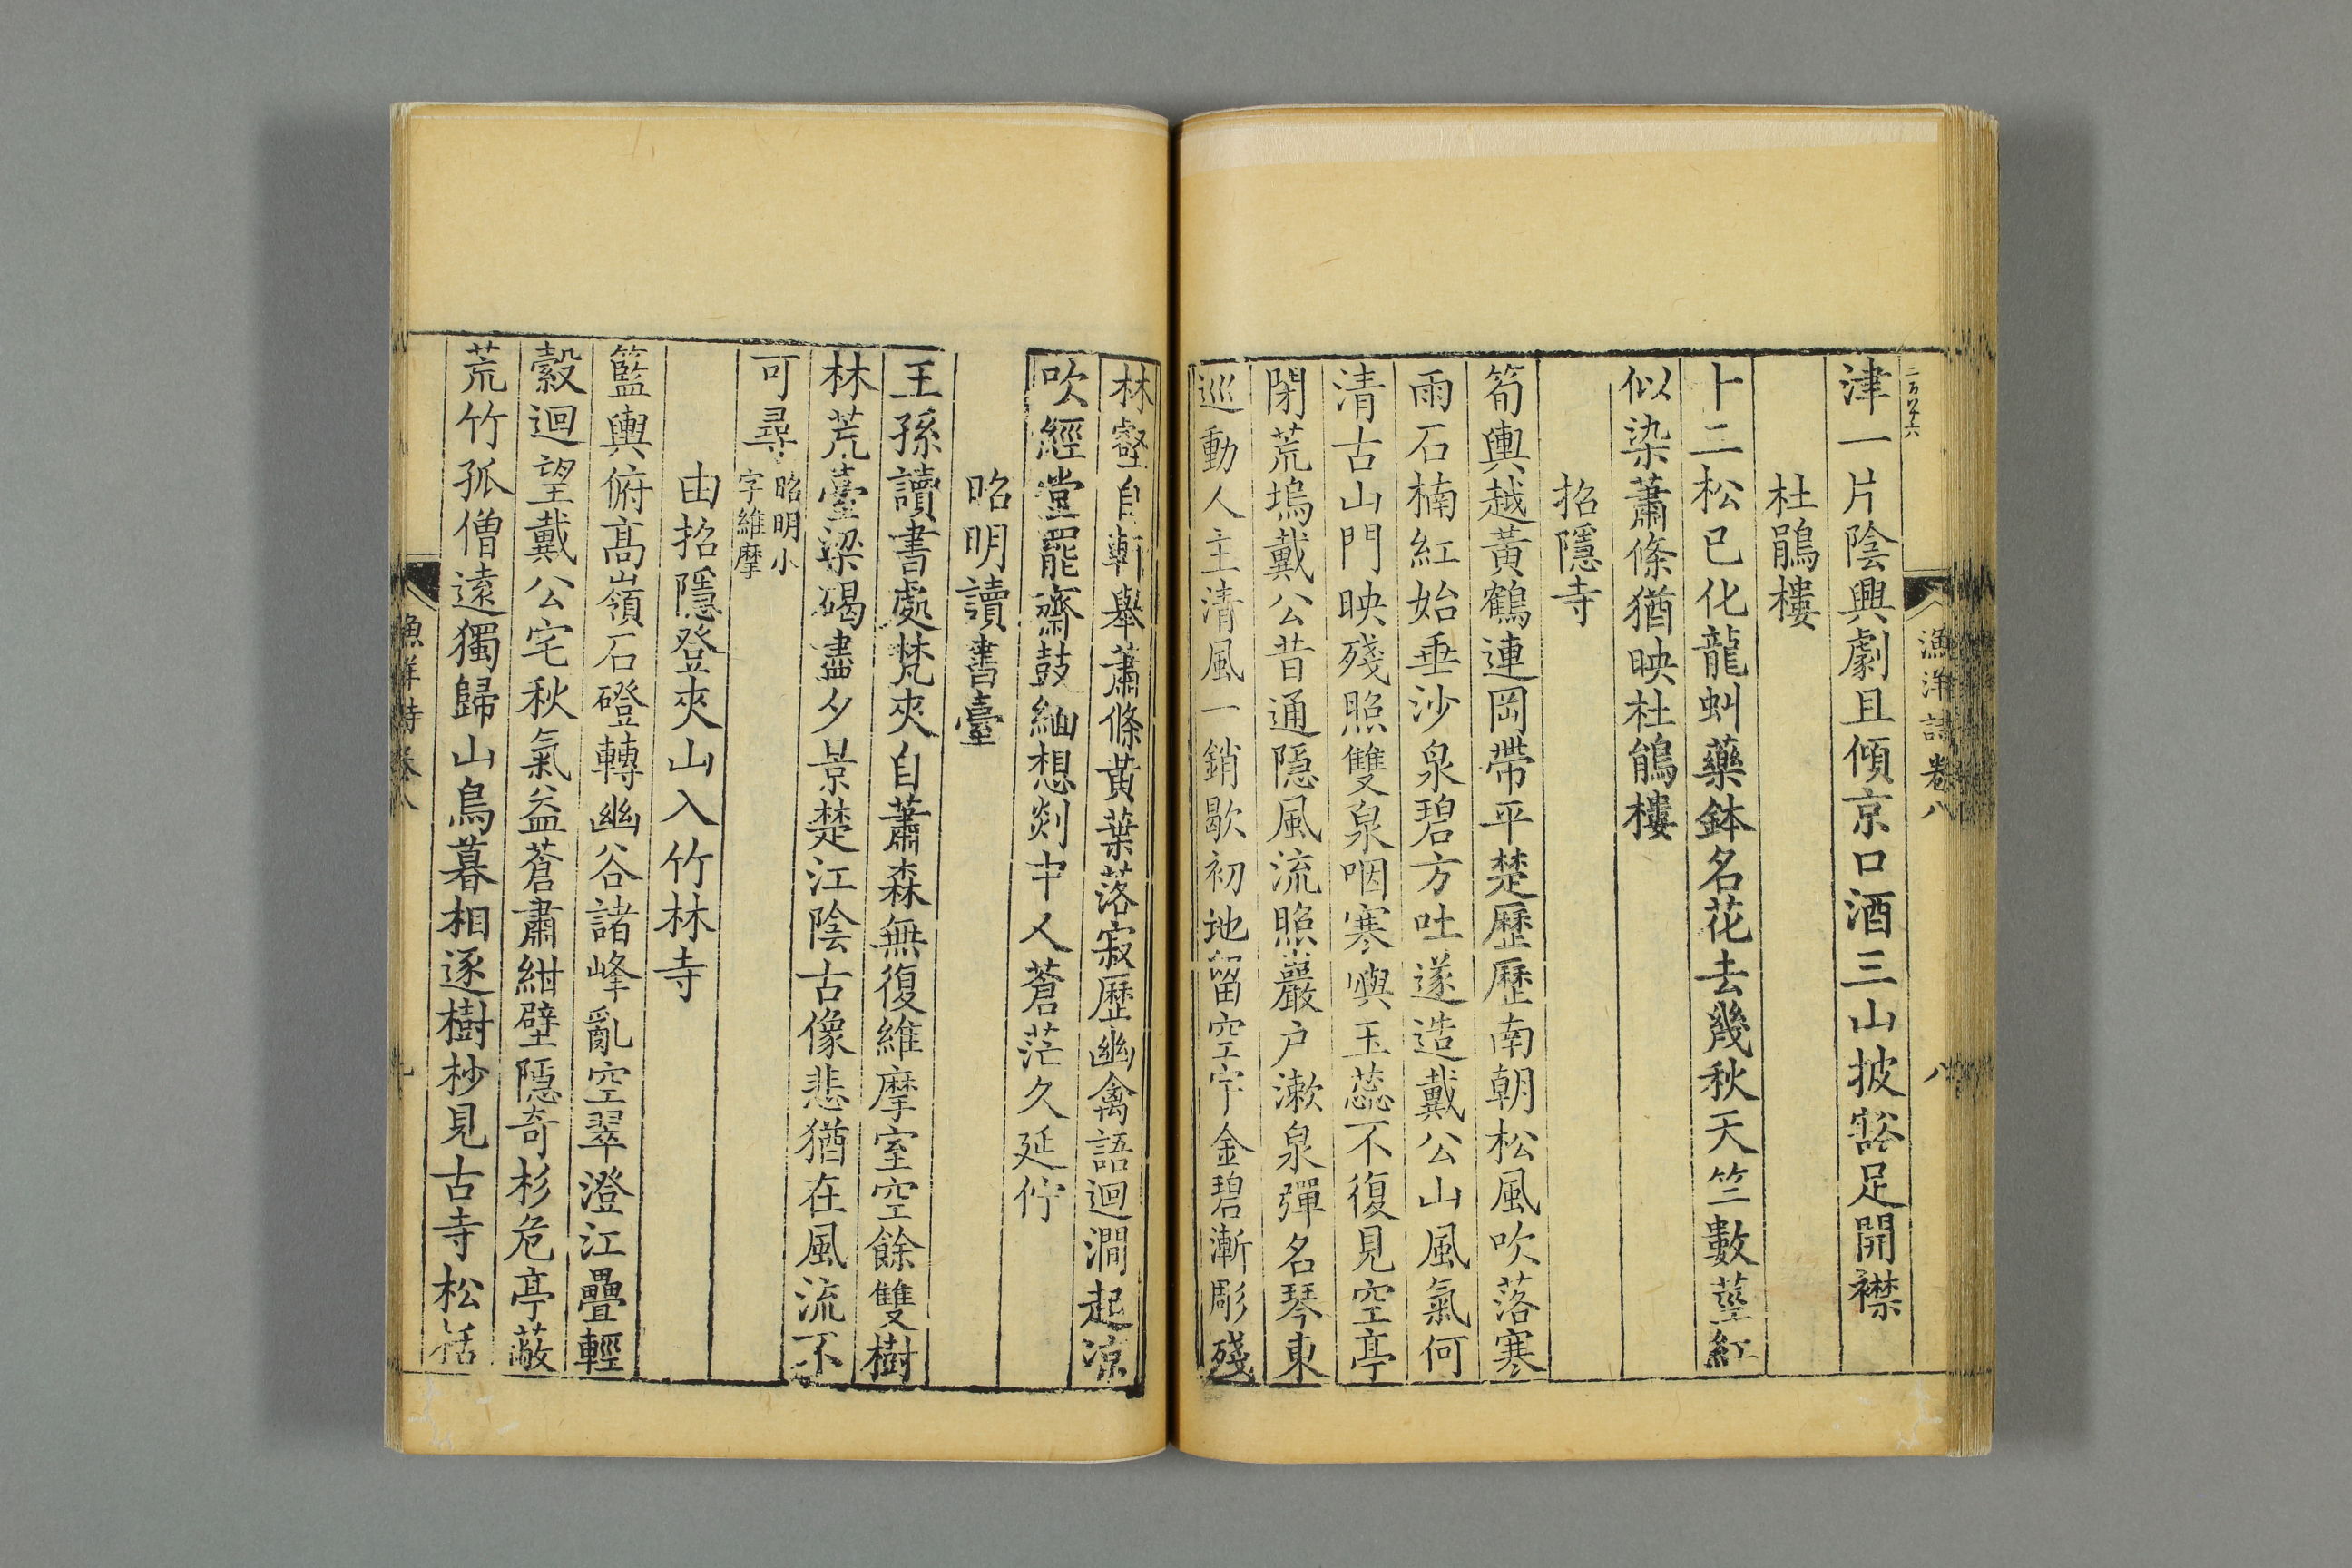 漁洋詩卷八
八
津一片陰興劇且傾京口酒三山披豁足開襟
杜鵑樓
卜二松已化龍虯藥鉢名花去幾秋天竺數莖紅
似染蕭條猶映杜鵑樓
招隱寺
筍輿越黃鶴連岡帶平楚歷歷南朝松風吹落寒
雨石楠紅始垂沙泉碧方吐遂造戴公山風氣何
清古山門映殘照雙泉咽寒嶼玉蕊不復見空亭
閉荒塢戴公昔通隱風流照巖戶漱泉彈名琴東
巡動人主清風一銷歇初地留空宇金碧漸彫殘
林壑自軒舉蕭條黃葉落寂歷幽禽語迴澗起涼
吹經堂罷齋鼓緬想剡中人蒼茫久延佇
昭明讀書臺
王孫讀書處梵夾自蕭森無復維摩室空餘雙樹
林荒臺梁碣盡夕景楚江陰古像悲猶在風流不
可尋昭明小字維摩
由招隱登夾山入竹林寺
籃輿俯高嶺石磴轉幽谷諸峰亂空翠澄江疊輕
縠迴望戴公宅秋氣益蒼肅紺壁隱奇杉危亭蔽
荒竹孤僧遠獨歸山鳥暮相逐樹杪見古寺松栝
漁洋詩卷八
九